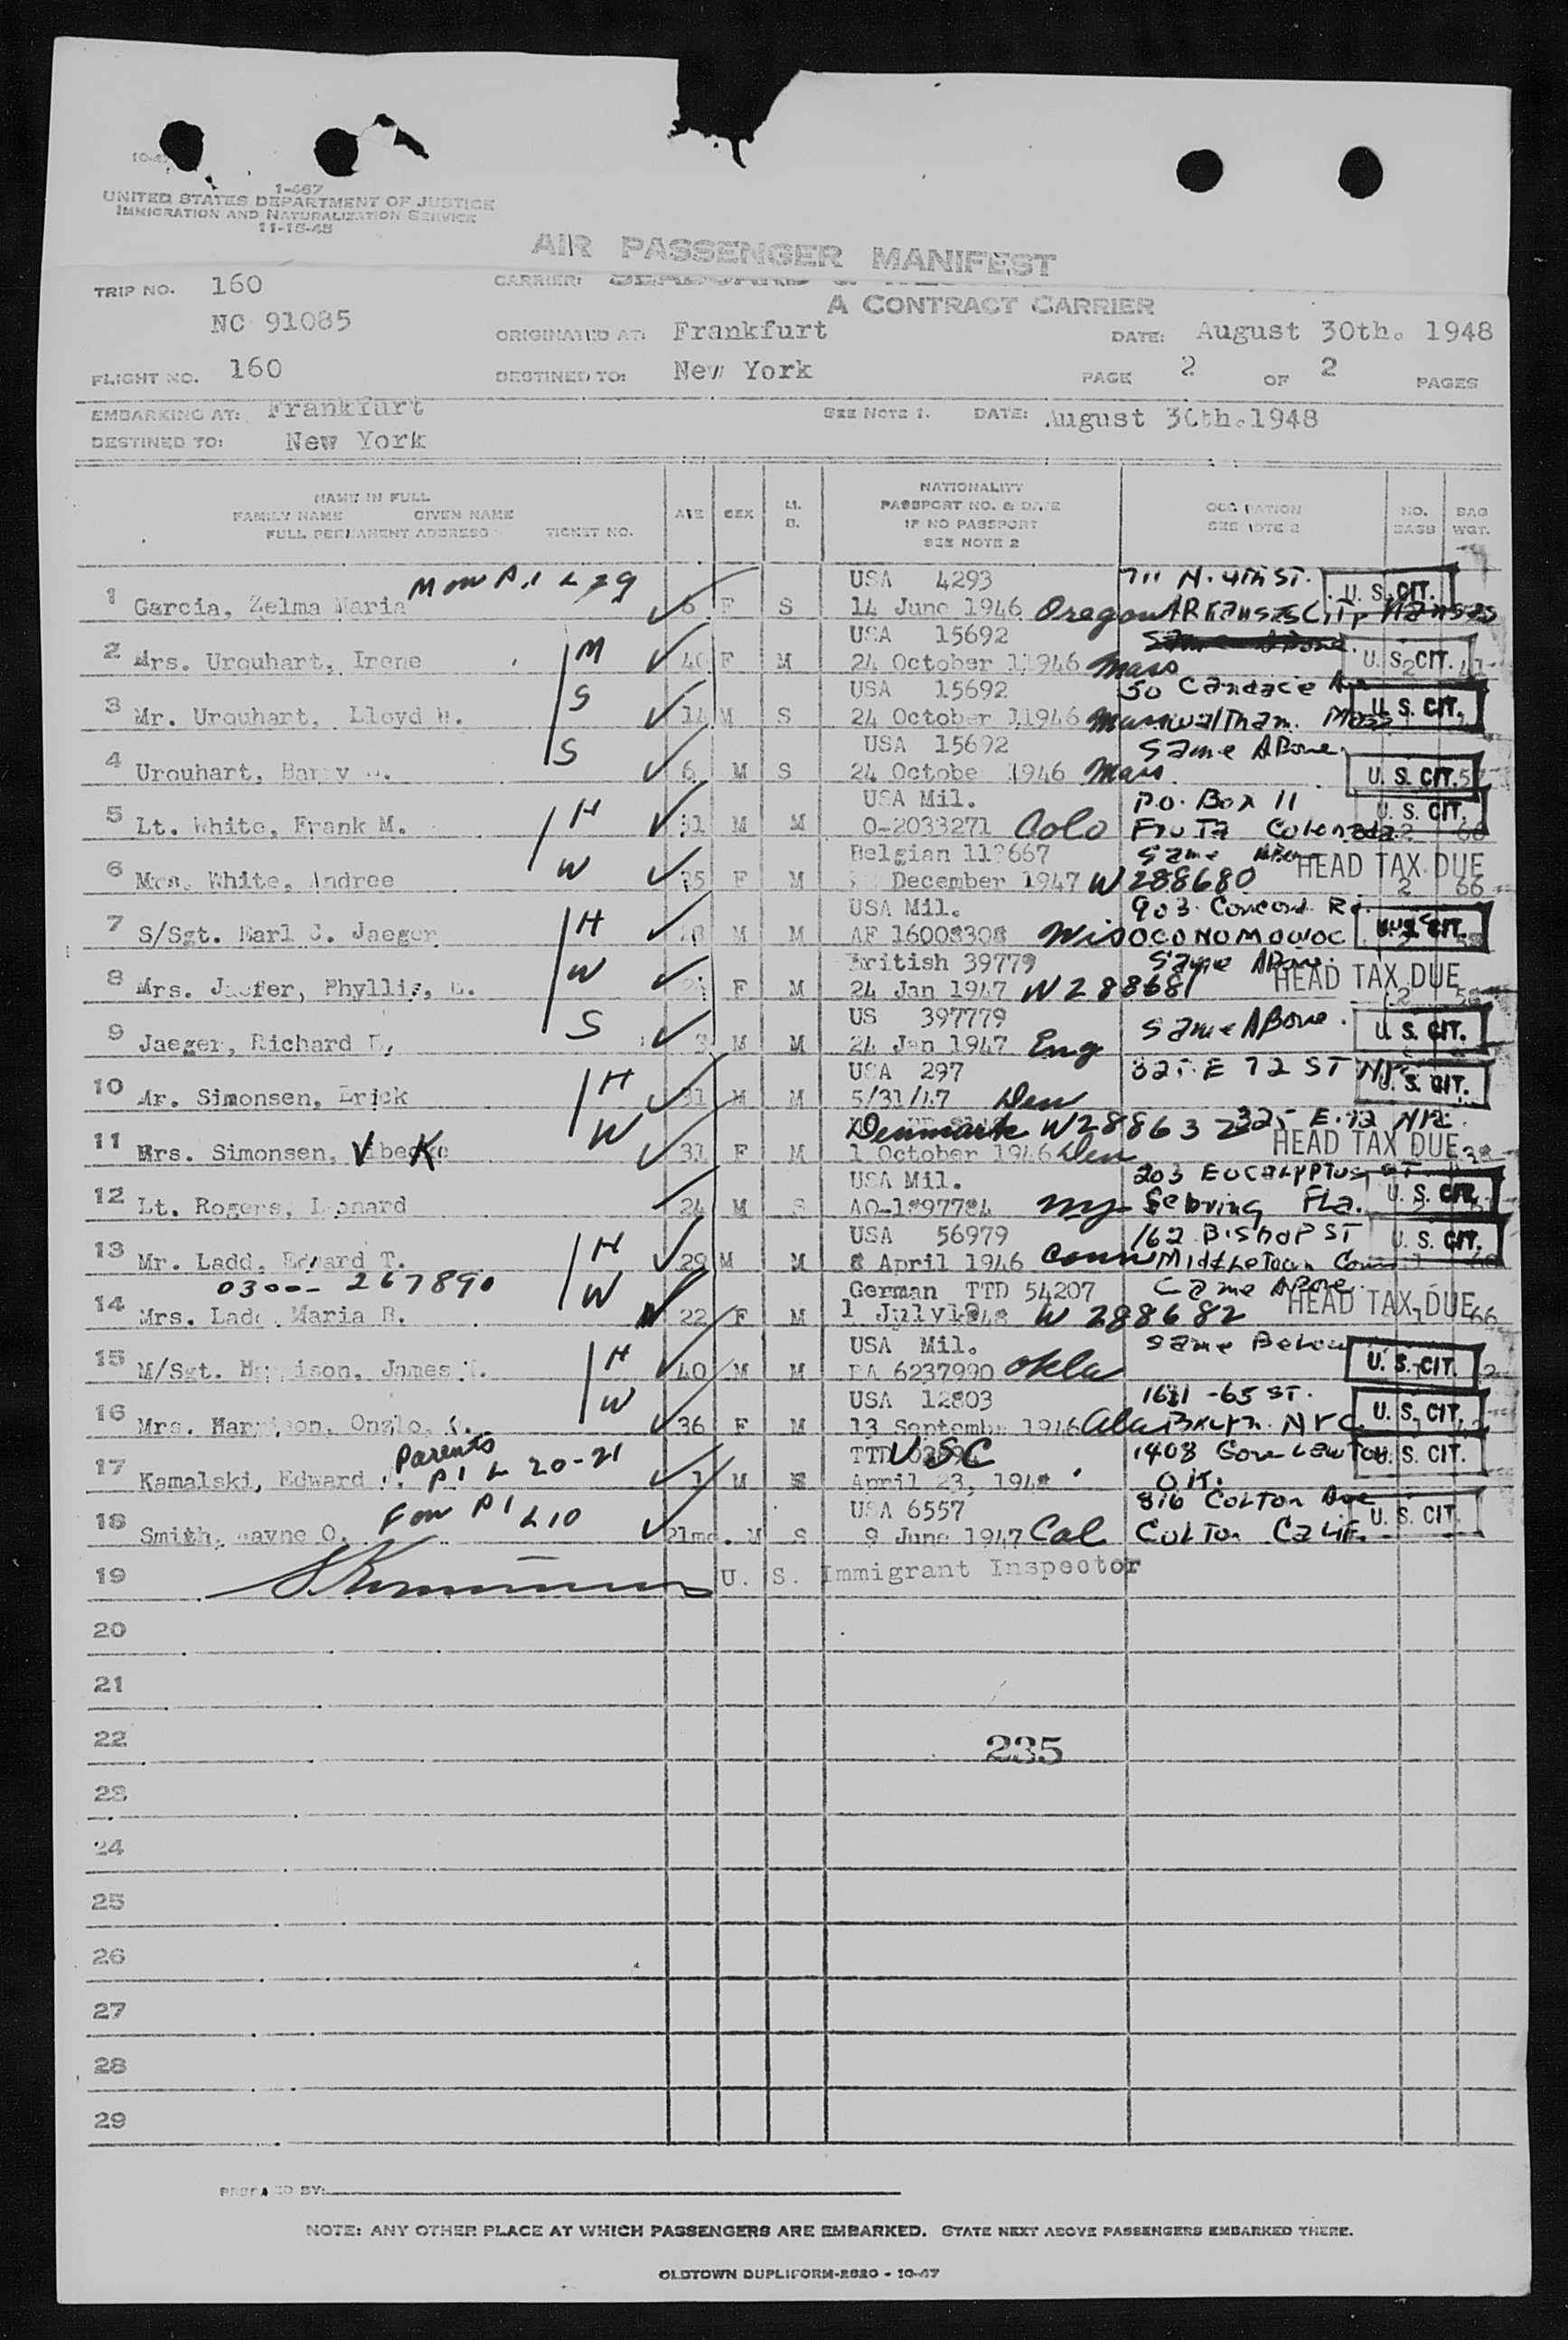 1-467
UNITED STATES DEPARTMENT OF JUSTICE
IMMIGRATION AND NATURALIZATION SERVICE
11-15-45
AIR PASSENGER MANIFEST
TRIP NO. 160 CARRIER:
A CONTRACT CARRIER
NC 91085 ORIGINATED AT: Frankfurt DATE: August 30th. 1948
FLIGHT NO. 160 DESTINED TO: New York PAGE 2 OF 2 PAGES
EMBARKING AT: Frankfurt SEE NOTE 1. DATE: August 30th.1948
DESTINED TO: New York
NAME IN FULL
FAMILY NAME GIVEN NAME
FULL PERMANENT ADDRESS TICKET NO.
AGE SEX M. S.
NATIONALITY
PASSPORT NO. & DATE
IF NO PASSPORT
SEE NOTE 2
OCCUPATION
SEE NOTE 2
NO. BAGS
BAG WGT.
USA 4293 711 N. 4th ST.
1 Garcia, Zelma Maria 6 F S 14 June 1946 Oregon Arkansas City Kansas U. S. CIT.
USA 15692 Same Above.
2 Mrs. Urquhart, Irene M 40 F M 24 October 11946 Mass U. S. CIT.
USA 15692 50 Candace Ave
3 Mr. Urquhart, Lloyd W. S 14 M S 24 October 11946 Mass Waltham. Mass U. S. CIT.
USA 15692 Same Above.
4 Urquhart, Barry S 6 M S 24 October 1946 Mass U. S. CIT.
USA Mil. P.O. Box 11
5 Lt. White, Frank M. H 31 M M O-2033271 Colo Fruita Colorado U. S. CIT.
Belgian Same Above
6 Mrs. White, Andree W 25 F M December 1947 W 288680 HEAD TAX DUE 2 66
USA Mil. 903 Concord Rd.
7 S/Sgt. Earl C. Jaeger H M M AF 16008308 Wis OCONOMOWOC U. S. CIT.
British 39779 Same Above.
8 Mrs. Phyllis, W F M 24 Jan 1947 W 288681 HEAD TAX DUE
US 397779 Same Above.
9 Jaeger, Richard S 3 M M 24 Jan 1947 Eng U. S. CIT.
USA 297 325 E 72 ST NYC
10 Mr. Simonsen, Erick H 31 M M 5/31/47 Den U. S. CIT.
Denmark W288632 325 E. 72 NYC.
11 Mrs. Simonsen, Vibeke W 31 F M 1 October 1946 Den HEAD TAX DUE
USA Mil. 203 Eucalyptus ST
12 Lt. Rogers, Leonard 24 M S AO-1897784 NY Sebring Fla. U. S. CIT.
USA 56979 162 Bishop ST
13 Mr. Ladd, Edward T. H 29 M M 8 April 1946 Conn Middletown Conn U. S. CIT.
0300-- 267890 German TTD 54207 Same Above.
14 Mrs. Ladd, Maria B. W 22 F M 1 July 1948 W 288682 HEAD TAX DUE 66
USA Mil. Same Below
15 M/Sgt. Harrison, James H 40 M M RA 6237990 Okla U. S. CIT.
USA 12803 1681 - 65 ST.
16 Mrs. Harrison, Onzlo, W 36 F M 13 Septembe 1946 Ala Bklyn. NYC U. S. CIT.
Parents P1 L 20-21 TTD USC 1403 Gore Lawton
17 Kamalski, Edward 1 M S April 23, 1948 OK. U. S. CIT.
F on P1 L10 USA 6557 816 Colton Ave
18 Smith, Wayne O. 21mo. M S 9 June 1947 Cal Colton Calif. U. S. CIT.
19 U. S. Immigrant Inspector
20
21
22 235
23
24
25
26
27
28
29
PREPARED BY:
NOTE: ANY OTHER PLACE AT WHICH PASSENGERS ARE EMBARKED. STATE NEXT ABOVE PASSENGERS EMBARKED THERE.
OLDTOWN DUPLIFORM-2820 - 10-47